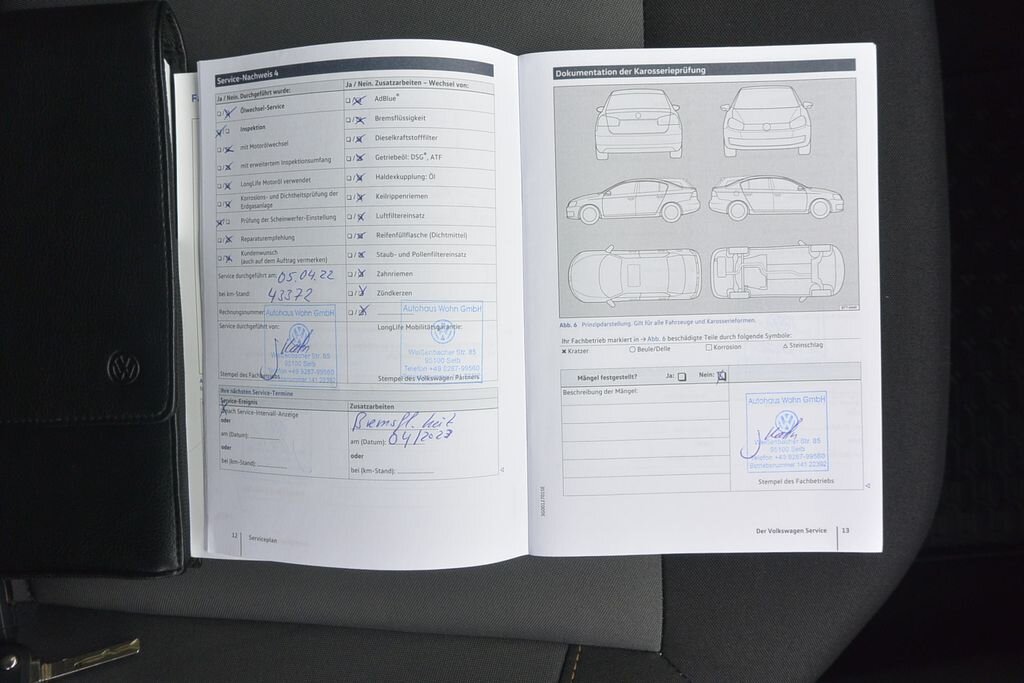 Service-Nachweis 4
Ja / Nein. Durchgeführt wurde:
Ölwechsel-Service
Inspektion
mit Motorölwechsel
mit erweitertem Inspektionsumfang
LongLife Motoröl verwendet
Korrosions- und Dichtheitsprüfung der
Erdgasanlage
Prüfung der Scheinwerfer-Einstellung
Reparaturempfehlung
Kundenwunsch
(auch auf dem Auftrag vermerken)
Service durchgeführt am: 05.04.22
bei km-Stand: 43372
Rechnungsnummer:
Service durchgeführt von:
Autohaus Wohn GmbH
Weißenbacher Str. 85
95100 Selb
Telefon +49 9287-99560
Betriebsnummer 141 22392
Stempel des Fachbetriebs
Ja / Nein. Zusatzarbeiten – Wechsel von:
AdBlue®
Bremsflüssigkeit
Dieselkraftstofffilter
Getriebeöl: DSG®, ATF
Haldexkupplung: Öl
Keilrippenriemen
Luftfiltereinsatz
Reifenfüllflasche (Dichtmittel)
Staub- und Pollenfiltereinsatz
Zahnriemen
Zündkerzen
LongLife Mobilitätsgarantie:
Autohaus Wohn GmbH
Weißenbacher Str. 85
95100 Selb
Telefon +49 9287-99560
Betriebsnummer 141 22392
Stempel des Volkswagen Partners
Ihre nächsten Service-Termine
Service-Ereignis
nach Service-Intervall-Anzeige
oder
am (Datum):
oder
bei (km-Stand):
Zusatzarbeiten
Bremsfl.keit
am (Datum): 04/2023
oder
bei (km-Stand):
12
Serviceplan
Dokumentation der Karosserieprüfung
Abb. 6 Prinzipdarstellung. Gilt für alle Fahrzeuge und Karosserieformen.
Ihr Fachbetrieb markiert in → Abb. 6 beschädigte Teile durch folgende Symbole:
Kratzer
Beule/Delle
Korrosion
Steinschlag
Mängel festgestellt? Ja: Nein:
Beschreibung der Mängel:
Autohaus Wohn GmbH
Weißenbacher Str. 85
95100 Selb
Telefon +49 9287-99560
Betriebsnummer 141 22392
Stempel des Fachbetriebs
Der Volkswagen Service
13